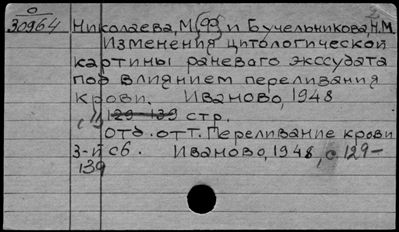 О
30964
Николаева, М[ФФ] и Бучельникова, Н.М.
Изменения цитологической
картины раневого экссудата
под влиянием переливания
крови. Иваново, 1948
11 129-139 стр.
Отд. отт. Переливание крови
3-й сб. Иваново, 1948, с 129-
139